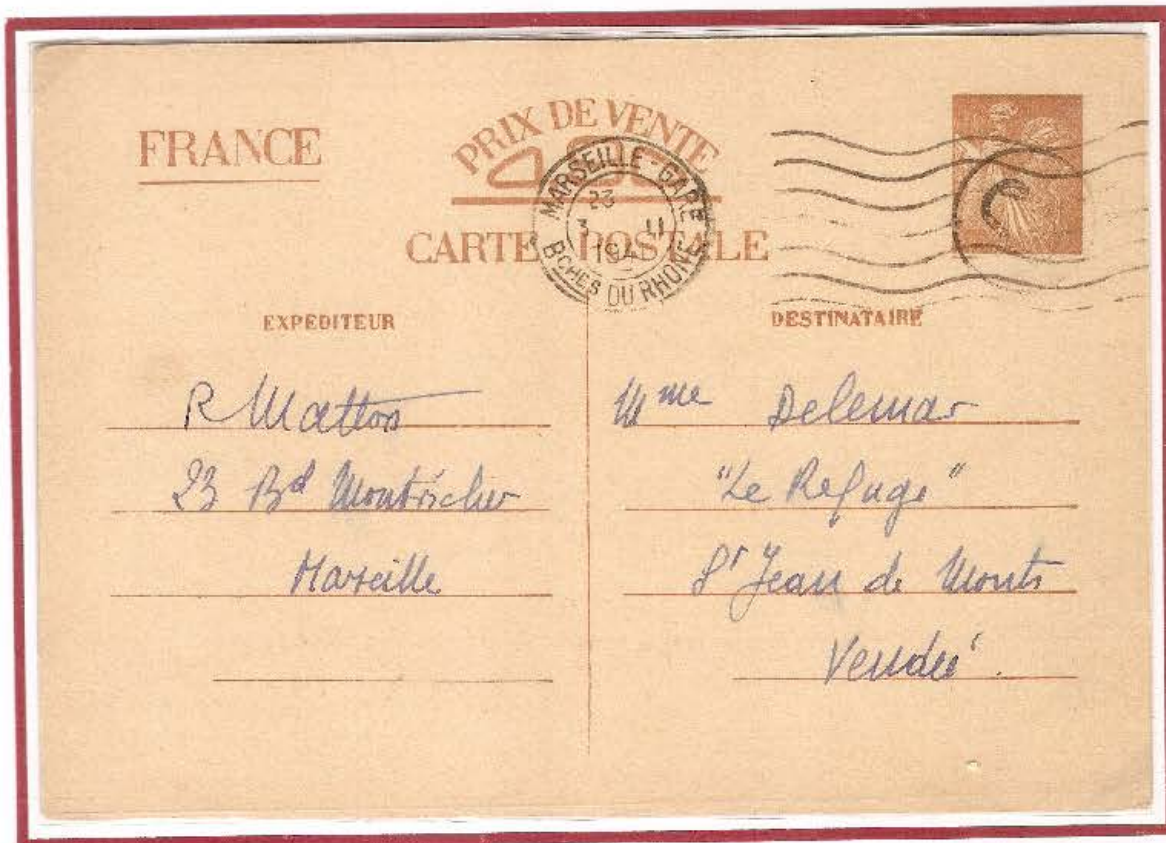 FRANCE
PRIX DE VENTE
CARTE POSTALE
MARSEILLE-GARE
23
3 11
194
BCHES DU RHONE
EXPEDITEUR
R Mattos
23 Bd Montricher
Marseille
DESTINATAIRE
Mme Delemar
"Le Refuge"
St Jean de Monts
Vendée